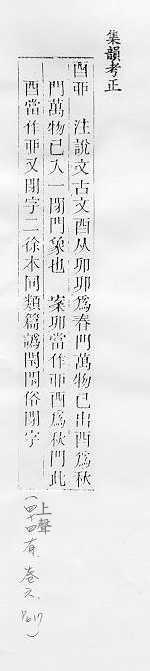 集韻考正
酉丣 注說文古文酉从丣丣爲春門萬物已出酉爲秋
門萬物已入一閉門象也 案丣當作丣酉爲秋門此
酉當作丣又閉字二徐本同類篇譌閇閇俗閉字
上聲
(四十四有 卷六